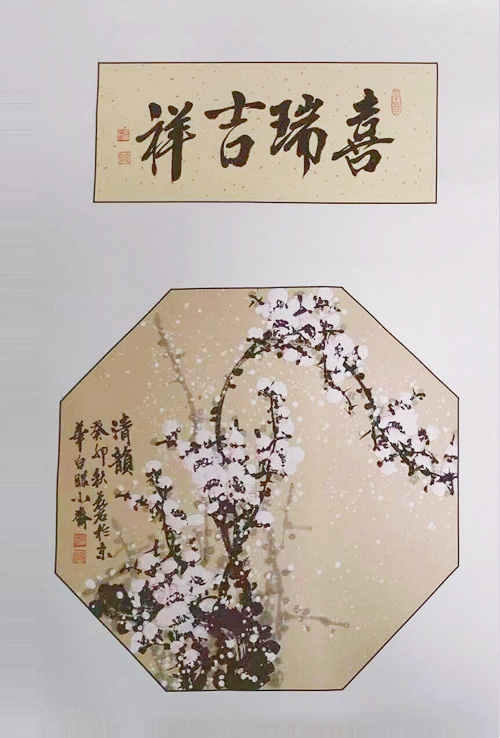 喜瑞吉祥
清韻
癸卯秋㒵於京
華白暇小齋